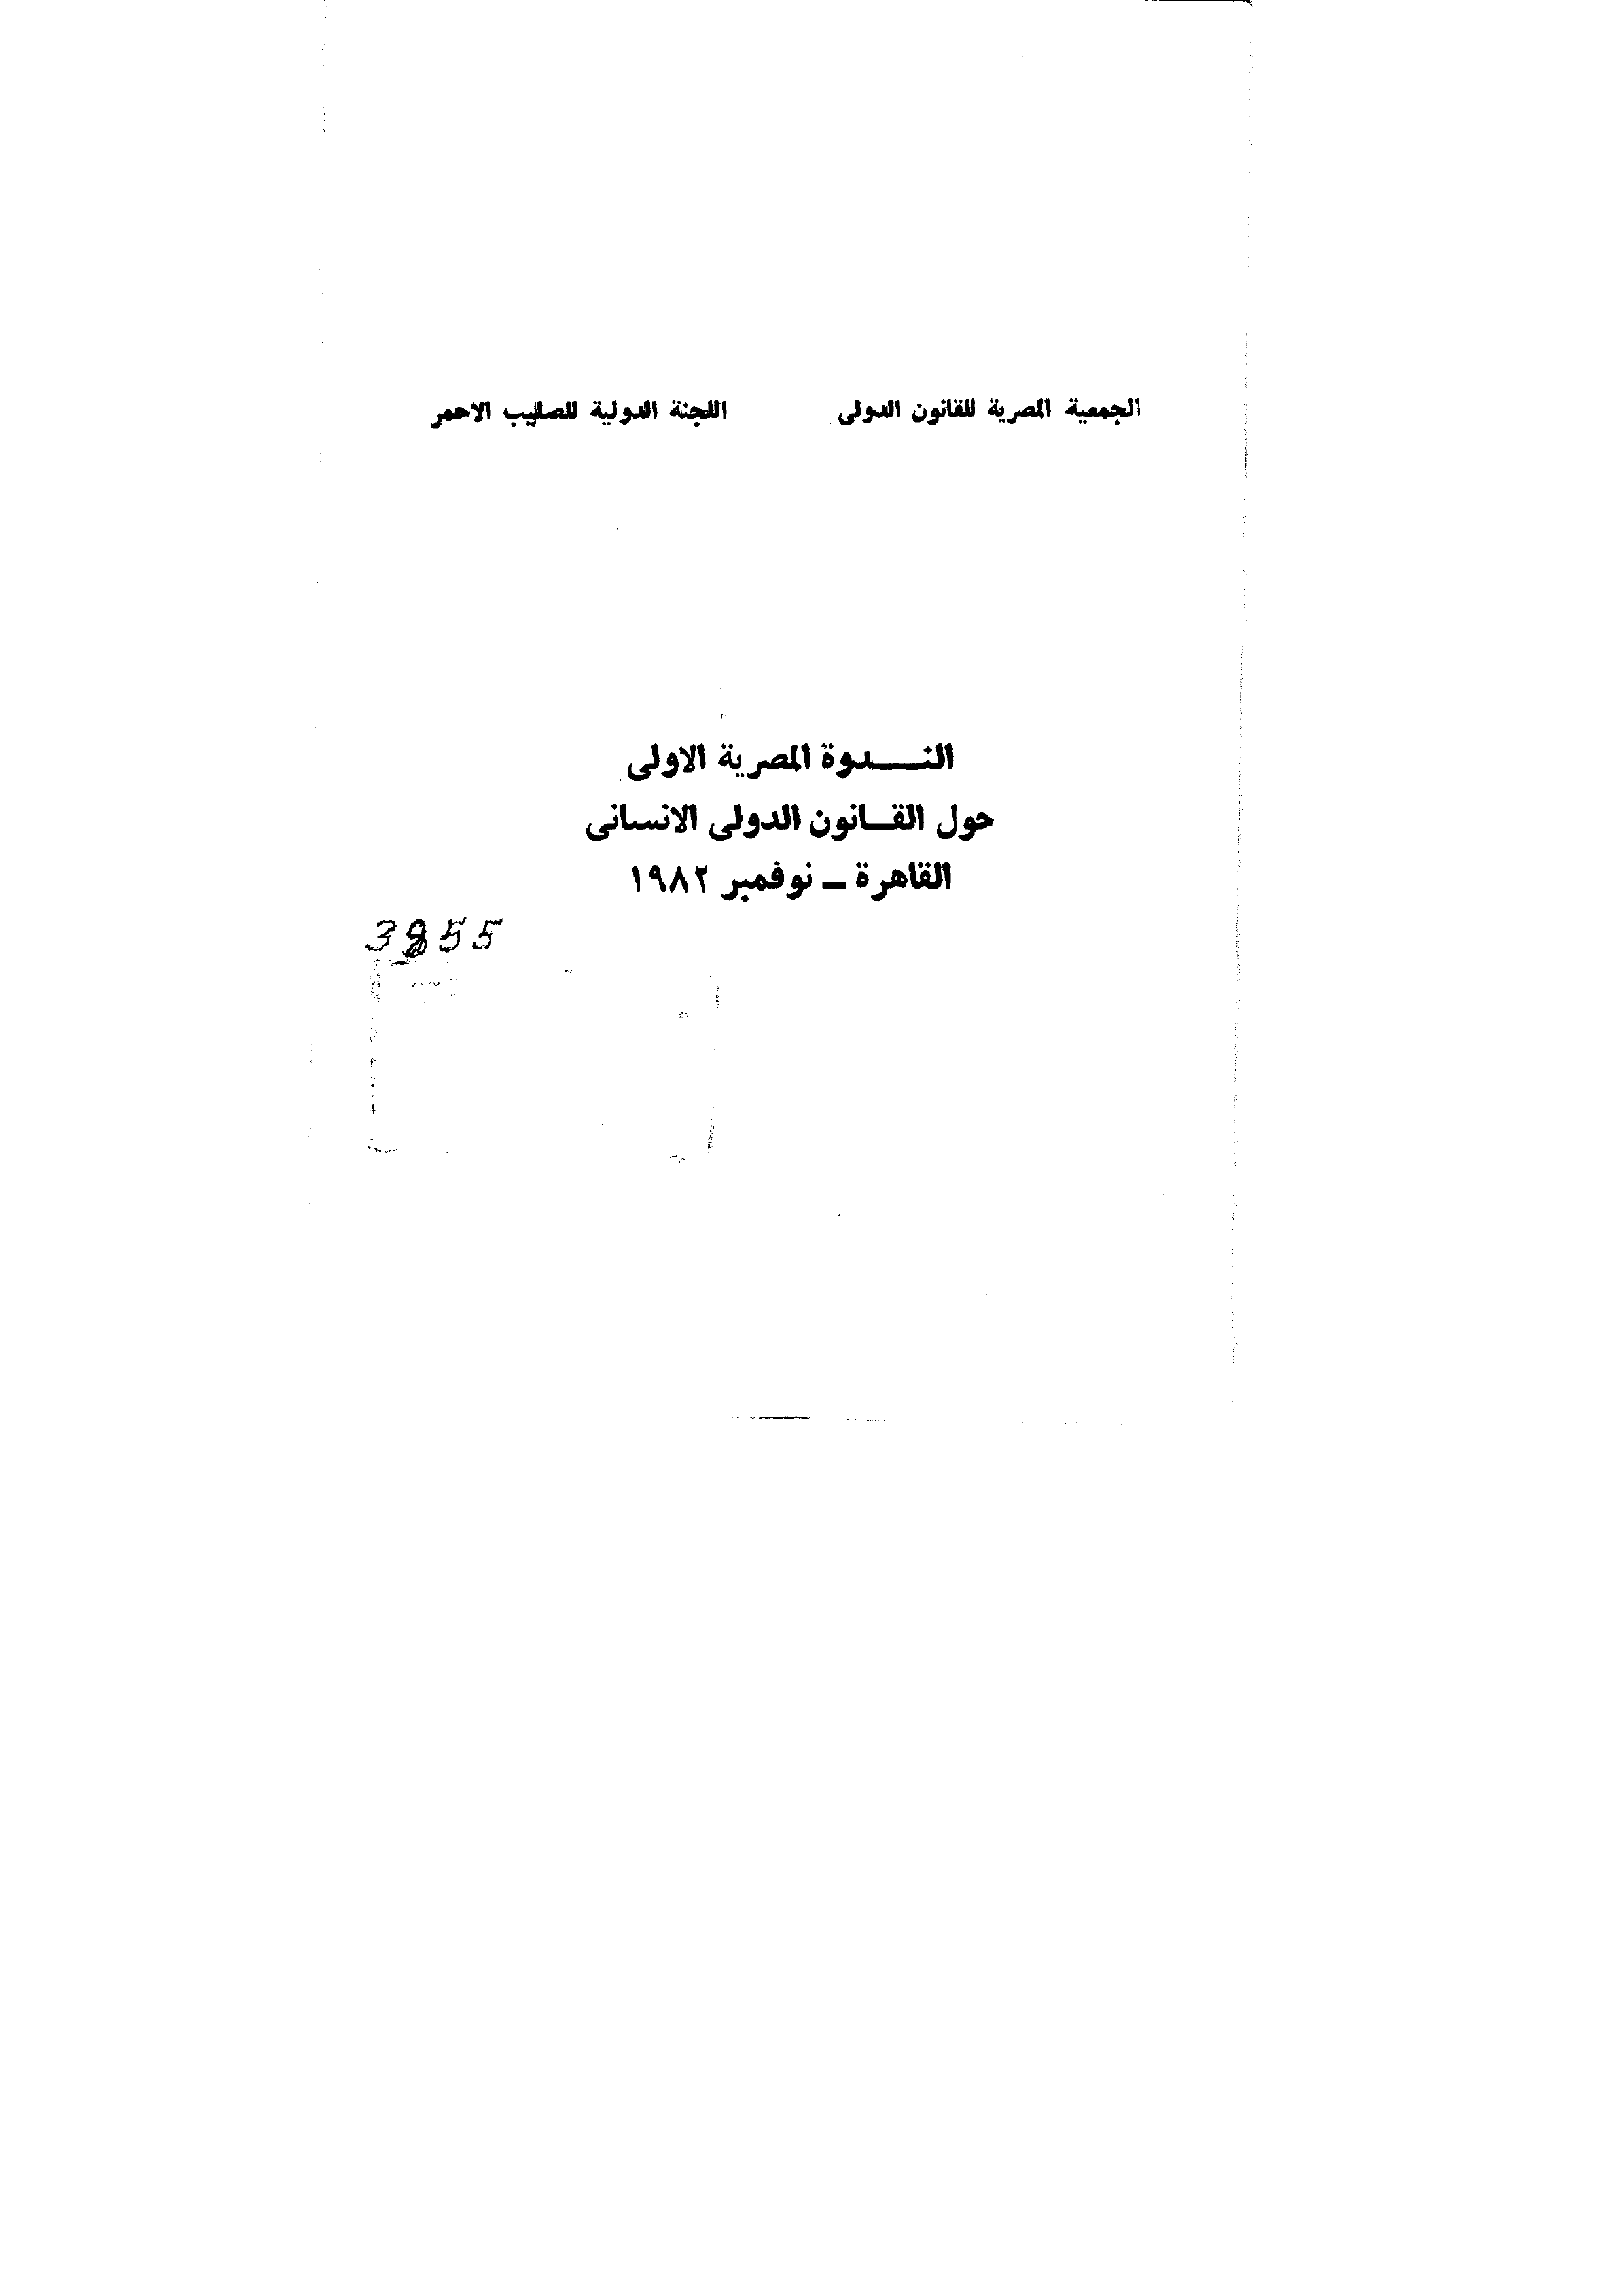 الجمعية المصرية للقانون الدولى
اللجنة الدولية للصليب الاحمر
النــــدوة المصرية الاولى
حول القــانون الدولى الانسانى
القاهرة ــ نوفمبر ١٩٨٢
3855